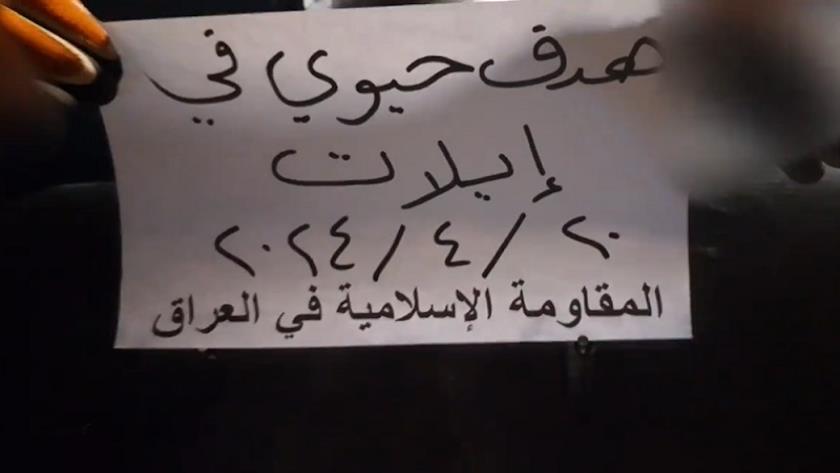 هدف حيوي في
إيلات
٢٠/٤/٢٠٢٤
المقاومة الإسلامية في العراق